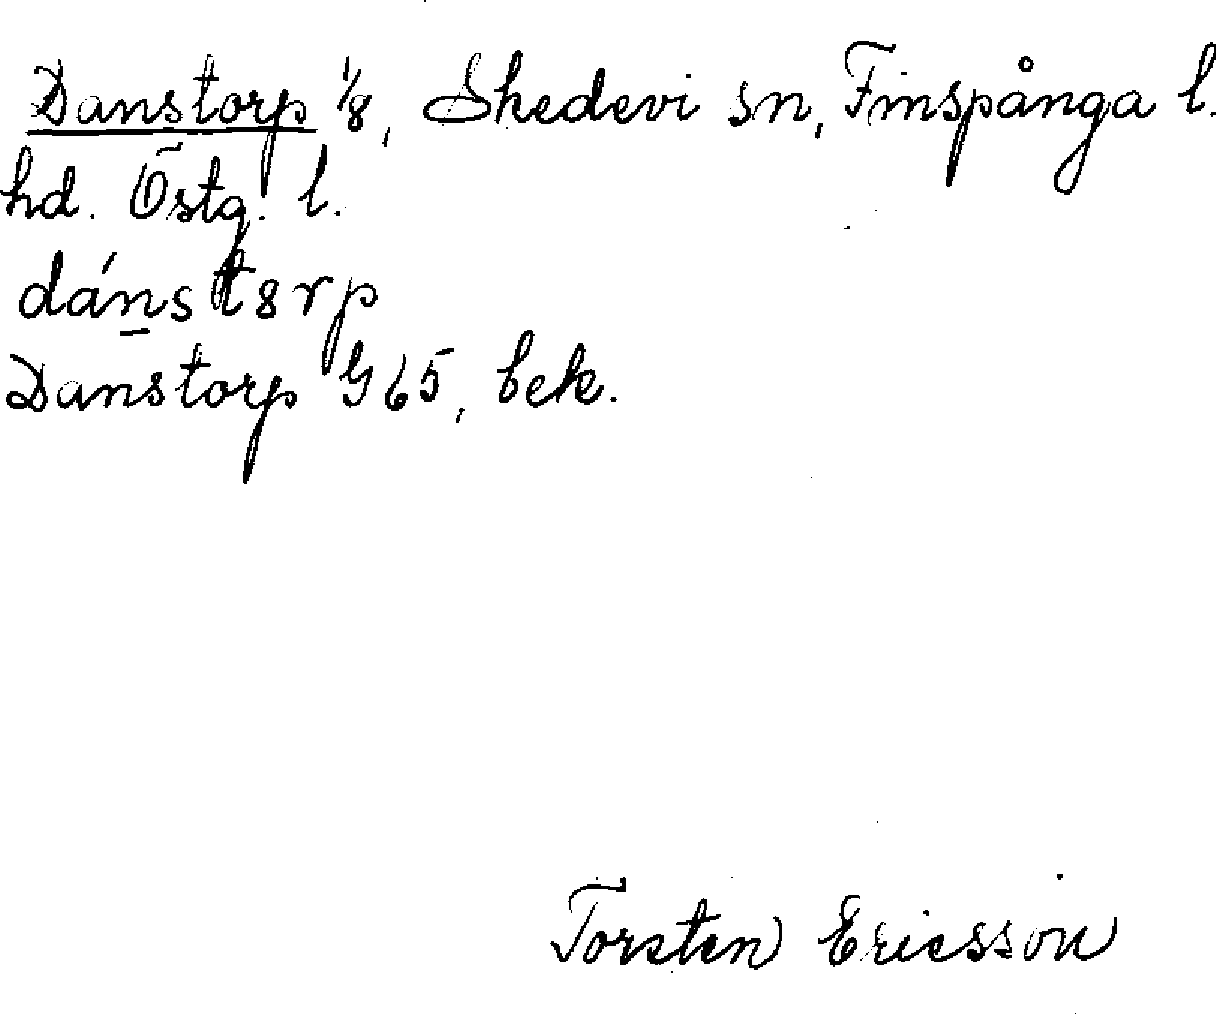 Danstorp 1/8, Skedevi sn, Finspånga l.
hd. Östg. l.
dánstɜrp
Danstorp G 65, bek.
Torsten Ericsson